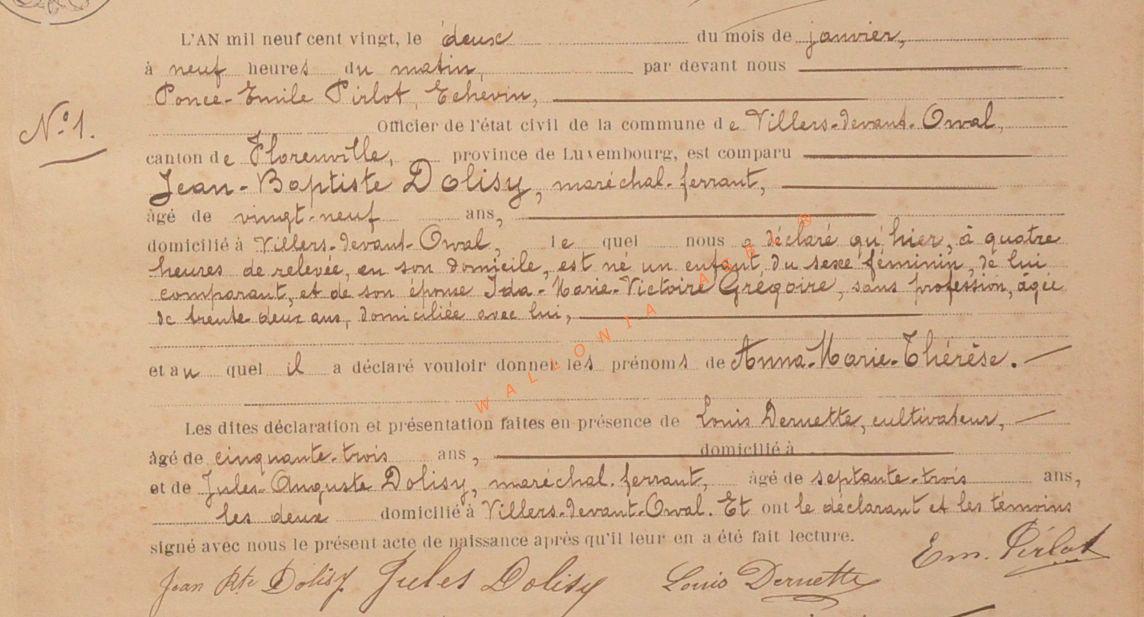 L'AN mil neuf cent vingt, le deux du mois de janvier,
à neuf heures du matin, par devant nous
Ponce-Emile Pirlot, Echevin,
N.º 1.
Officier de l'état civil de la commune de Villers-devant-Orval,
canton de Florenville, province de Luxembourg, est comparu
Jean-Baptiste Dolisy, maréchal-ferrant,
âgé de vingt-neuf ans,
domicilié à Villers-devant-Orval, le quel nous a déclaré qu'hier, à quatre
heures de relevée, en son domicile, est né un enfant du sexe féminin, de lui
comparant, et de son épouse Ida-Marie-Victoire Grégoire, sans profession, âgée
de trente-deux ans, domiciliée avec lui,
et au quel il a déclaré vouloir donner les prénoms de Anna-Marie-Thérèse.
Les dites déclaration et présentation faites en présence de Louis Dernette, cultivateur,
âgé de cinquante-trois ans, domicilié à
et de Jules-Auguste Dolisy, maréchal-ferrant, âgé de septante-trois ans,
les deux domicilié à Villers-devant-Orval. Et ont le déclarant et les témoins
signé avec nous le présent acte de naissance après qu'il leur en a été fait lecture.
Em. Pirlot
Jean Bte Dolisy Jules Dolisy Louis Dernette
WALLONIA